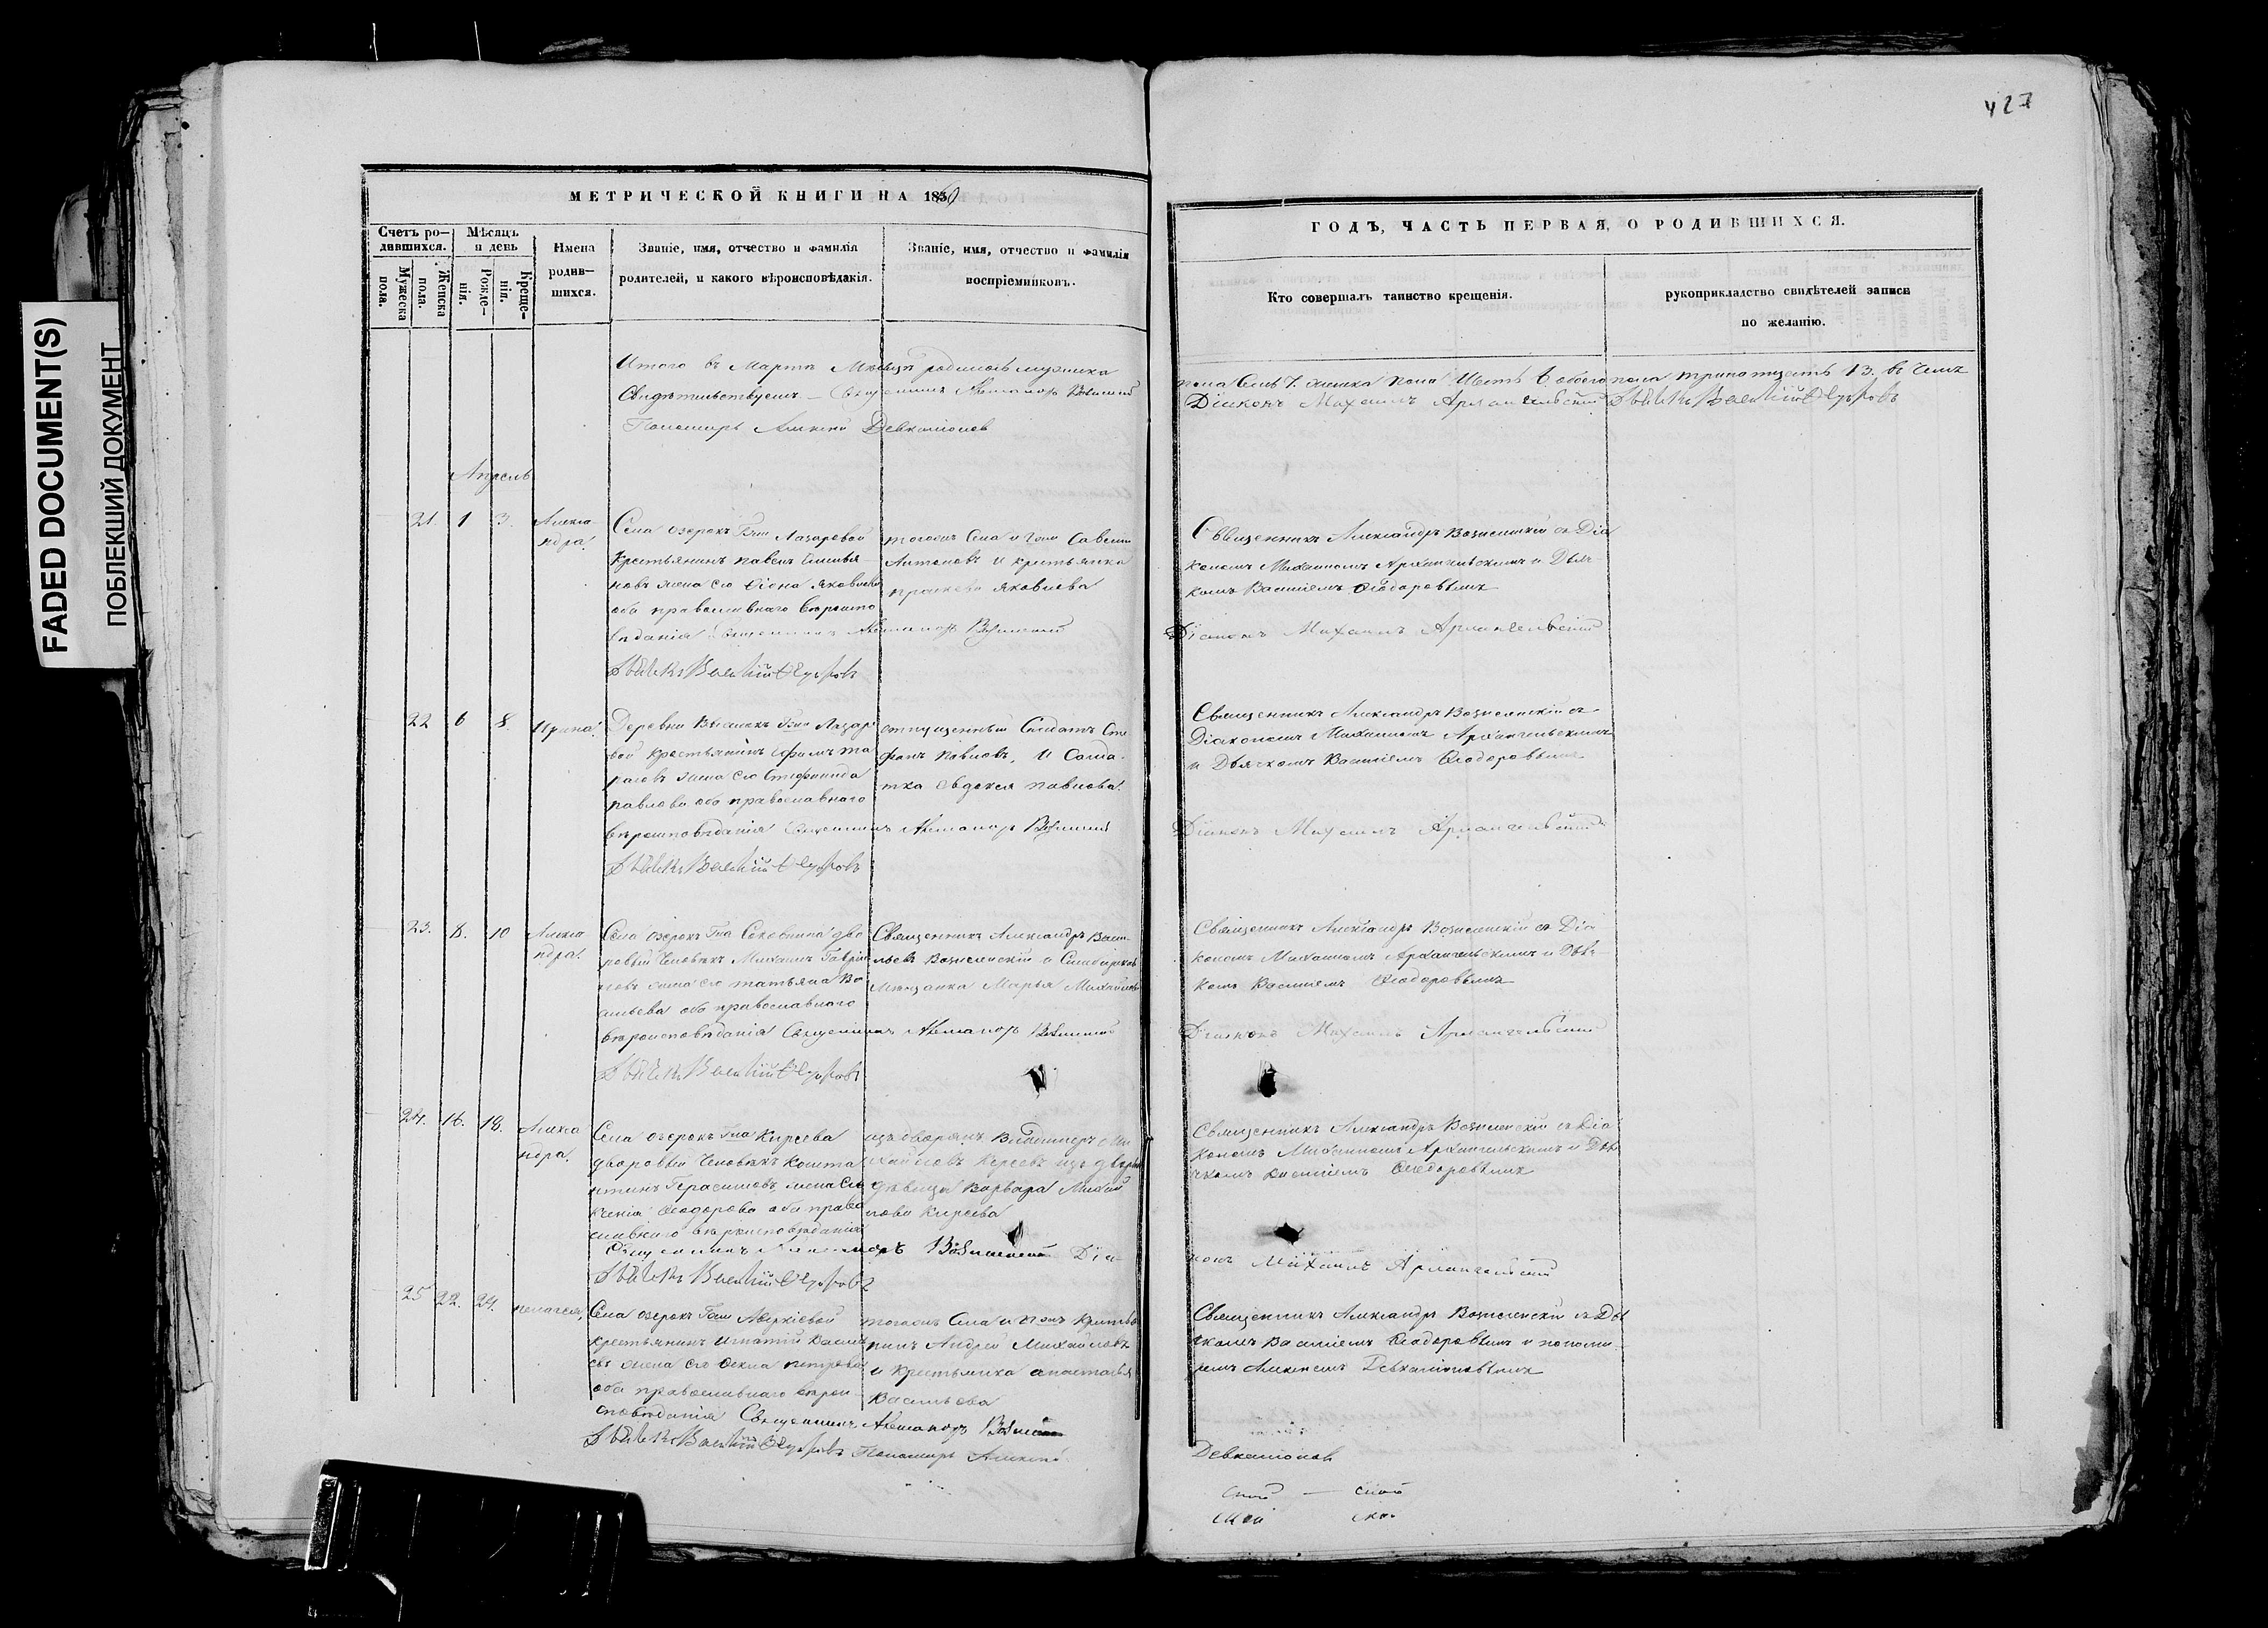 427
FADED DOCUMENT(S)
ПОБЛЕКШИЙ ДОКУМЕНТ
МЕТРИЧЕСКОЙ КНИГИ НА 1840
Счетъ ро-
дившихся.
Мѣсяцъ
и день
Имена
родив-
шихся.
Званіе, имя, отчество и фамилія
родителей, и какого вѣроисповѣданія.
Званіе, имя, отчество и фамилія
воспріемниковъ.
Мужеска
пола.
Женска
пола.
Рожде-
нія.
Креще-
нія.
ГОДЪ, ЧАСТЬ ПЕРВАЯ, О РОДИВШИХСЯ.
Кто совершалъ таинство крещенія.
рукоприкладство свидѣтелей записи
по желанію.
Итого въ Мартѣ Мѣсяцѣ родилось мужеска
пола Семь 7. женска пола Шесть 6. обоего пола тринатцеть 13. въ чемъ
Свидѣтельствуемъ – Священникъ Александръ Вознесенскій
Діаконъ Михаилъ Архангельскій Дьячекъ Василій Ѳедоровъ
Пономарь Алексей Девкалионов
Апрель
21. 1 3.
Алекса-
ндра.
Села озерокъ Гжи Лазаревой
Крестьянинъ павелъ Емелья-
новъ жена его Яковлева
оба православнаго вѣроиспо
вѣданія Священникъ Александръ Вознесенскій
Дьячекъ Василій Ѳедоровъ
тогожъ Села и Гжи Савелий
Антоновъ и крестьянка
праскевья Яковлева
Священникъ Александръ Вознесенскій съ Діа
кономъ Михаиломъ Архангельскимъ и Дьяч-
комъ Василіемъ Ѳеодоровымъ
Діаконъ Михаилъ Архангельскій
22 6 8.
Ирина.
Деревни Гжи Лазаре
вой крестьянинъ та
расовъ жена его Стефанида
павлова оба православнаго
вѣроисповѣданія Священникъ Александръ Вознесенскій
Дьячекъ Василій Ѳедоровъ
отпущенный Солдатъ Сте
фанъ павловъ, и Солда-
тка Евдокея павлова.
Священникъ Александръ Вознесенскій съ
Діакономъ Михаиломъ Архангельскимъ
и Дьячкомъ Василіемъ Ѳеодоровымъ
Діаконъ Михаилъ Архангельскій
23. 8. 10
Алекса
ндра.
Села озерокъ Гна Соковнина дво
ровый Человѣкъ Михаилъ Гаврил
овъ жена его татьяна Ва
сильева оба православнаго
вѣроисповѣданія Священникъ Александръ Вознесенскій
Дьячекъ Василій Ѳедоровъ
Священникъ Александръ Васи-
льевъ Вознесенскій и Симбирская
Мещанка Марья Михайлова
Священникъ Александръ Вознесенскій съ Діа
кономъ Михаиломъ Архангельскимъ и Дьяч-
комъ Василіемъ Ѳеодоровымъ
Діаконъ Михаилъ Архангельскій
24. 16. 18.
Алекса
ндра.
Села озерокъ Гна Киреева
дворовый Человѣкъ Конста
нтинъ Герасимовъ, жена Его
Ксенія Ѳеодорова оба право
славнаго вѣроисповѣданія
Священникъ Александръ Вознесенскій Діа-
Дьячекъ Василій Ѳедоровъ
изъ дворянъ Владимеръ Ми
хайловъ Киреевъ изъ дворянъ
дѣвица Варвара Михай
лова Киреева
Священникъ Александръ Вознесенскій съ Діа
кономъ Михаиломъ Архангельскимъ и Дья
чкомъ Василіемъ Ѳеодоровымъ
конъ Михаилъ Архангельскій
25 22. 24.
пелагея,
Села озерокъ Гжи Аверкіевой
крестьянинъ Игнатій Василь
евъ жена его Ѳекла петрова
оба православнаго вѣрои-
сповѣданія Священникъ Александръ Вознесенскій
Дьячекъ Василій Ѳедоровъ Пономарь Алексей
тогожъ Села и Гжи Крестья
нинъ Андрей Михайловъ
и крестьянка анастасья
Васильева
Священникъ Александръ Вознесенскій съ Дья
чкомъ Василіемъ Ѳеодоровымъ и понома-
ремъ Алексеемъ Девкалионовымъ
Девкалионов